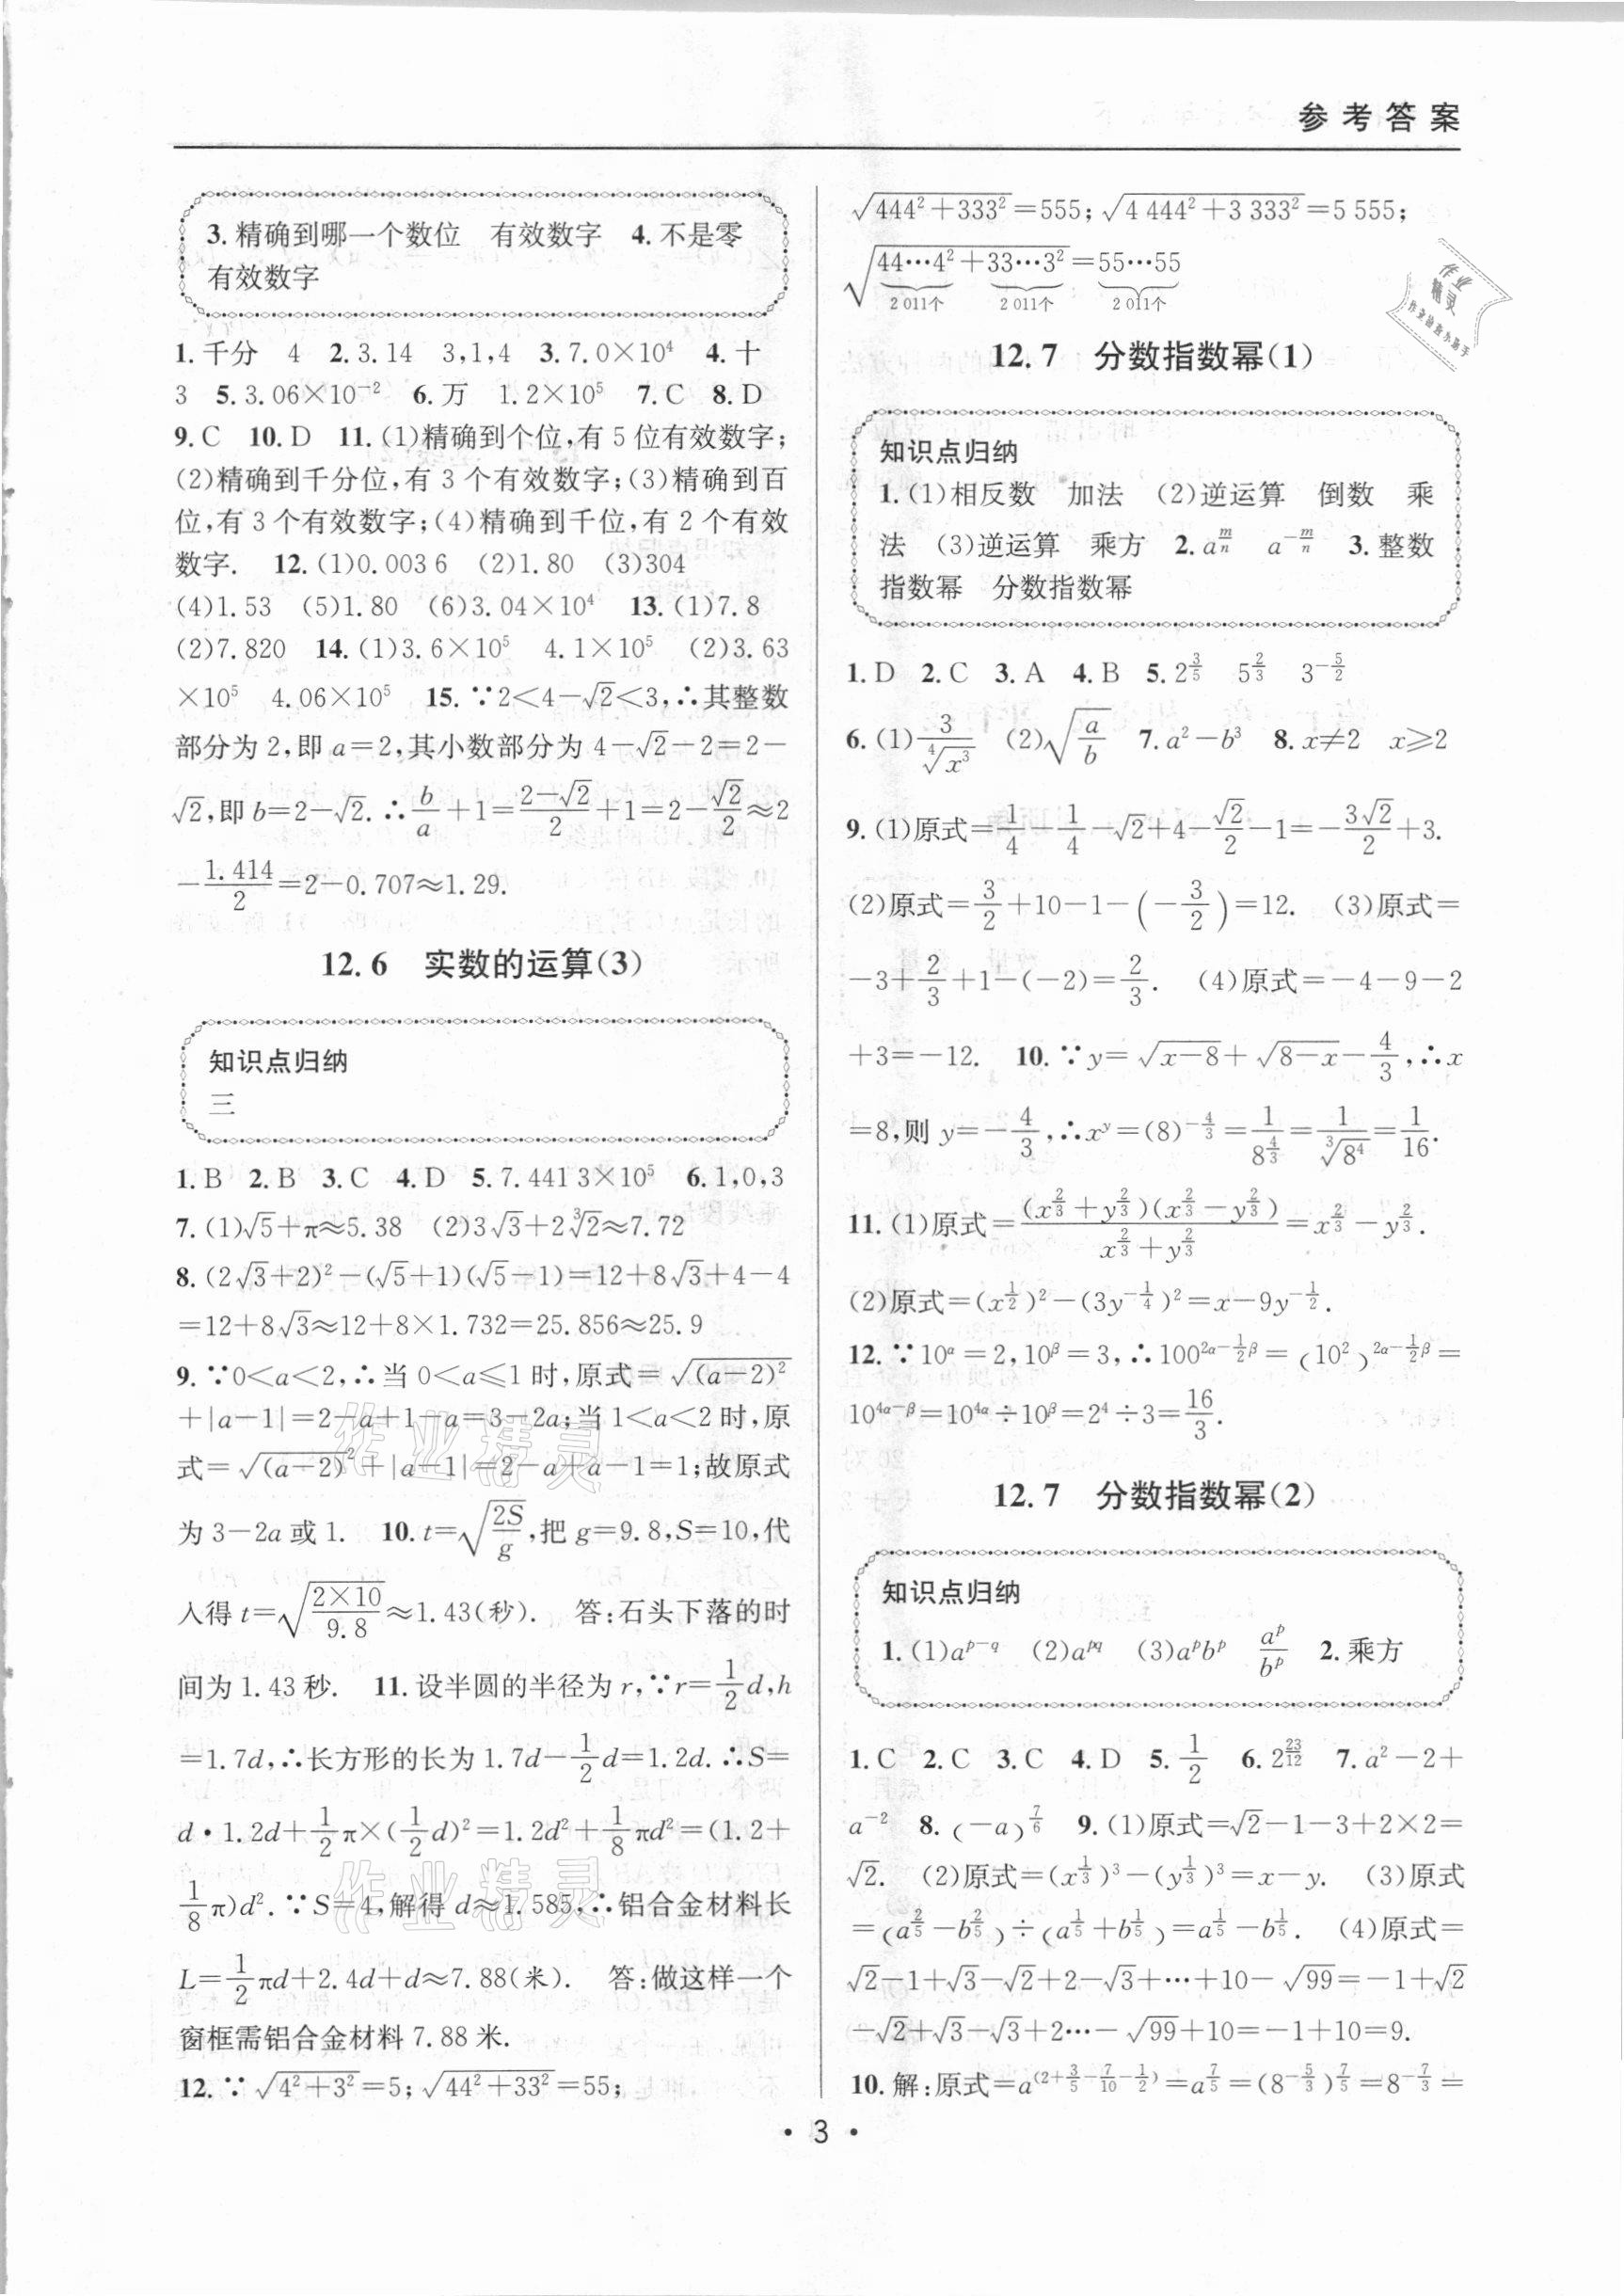 参考答案
3. 精确到哪一个数位　有效数字　4. 不是零
有效数字
1. 千分　4　2. 3.14　3,1,4　3. 7.0×10⁴　4. 十
3　5. 3.06×10⁻²　6. 万　1.2×10⁵　7. C　8. D
9. C　10. D　11. (1)精确到个位,有 5 位有效数字;
(2)精确到千分位,有 3 个有效数字;(3)精确到百
位,有 3 个有效数字;(4)精确到千位,有 2 个有效
数字.　12. (1)0.003 6　(2)1.80　(3)304
(4)1.53　(5)1.80　(6)3.04×10⁴　13. (1)7.8
(2)7.820　14. (1)3.6×10⁵　4.1×10⁵　(2)3.63
×10⁵　4.06×10⁵　15. ∵2<4−√2<3,∴其整数
部分为 2,即 a=2,其小数部分为 4−√2−2=2−
√2,即 b=2−√2. ∴b/a+1=(2−√2)/2+1=2−√2/2≈2
−1.414/2=2−0.707≈1.29.
12.6　实数的运算(3)
知识点归纳
三
1. B　2. B　3. C　4. D　5. 7.441 3×10⁵　6. 1,0,3
7. (1)√5+π≈5.38　(2)3√3+2∛2≈7.72
8. (2√3+2)²−(√5+1)(√5−1)=12+8√3+4−4
=12+8√3≈12+8×1.732=25.856≈25.9
9. ∵0<a<2,∴当 0<a≤1 时,原式=√((a−2)²)
+|a−1|=2−a+1−a=3−2a;当 1<a<2 时,原
式=√((a−2)²)+|a−1|=2−a+a−1=1;故原式
为 3−2a 或 1.　10. t=√(2S/g),把 g=9.8,S=10,代
入得 t=√((2×10)/9.8)≈1.43(秒).　答:石头下落的时
间为 1.43 秒.　11. 设半圆的半径为 r,∵r=1/2 d,h
=1.7d,∴长方形的长为 1.7d−1/2 d=1.2d. ∴S=
d·1.2d+1/2 π×(1/2 d)²=1.2d²+1/8 πd²=(1.2+
1/8 π)d². ∵S=4,解得 d≈1.585,∴铝合金材料长
L=1/2 πd+2.4d+d≈7.88(米).　答:做这样一个
窗框需铝合金材料 7.88 米.
12. ∵√(4²+3²)=5;√(44²+33²)=55;
√(444²+333²)=555;√(4 444²+3 333²)=5 555;
√(44…4²+33…3²)=55…55
2 011个　2 011个　2 011个
12.7　分数指数幂(1)
知识点归纳
1. (1)相反数　加法　(2)逆运算　倒数　乘
法　(3)逆运算　乘方　2. a^(m/n)　a^(−m/n)　3. 整数
指数幂　分数指数幂
1. D　2. C　3. A　4. B　5. 2^(3/5)　5^(2/3)　3^(−5/2)
6. (1)3/⁴√(x³)　(2)√(a/b)　7. a²−b³　8. x≠2　x≥2
9. (1)原式=1/4−1/4−√2+4−√2/2−1=−3√2/2+3.
(2)原式=3/2+10−1−(−3/2)=12.　(3)原式=
−3+2/3+1−(−2)=2/3.　(4)原式=−4−9−2
+3=−12.　10. ∵y=√(x−8)+√(8−x)−4/3,∴x
=8,则 y=−4/3,∴x^y=(8)^(−4/3)=1/8^(4/3)=1/∛(8⁴)=1/16.
11. (1)原式=(x^(2/3)+y^(2/3))(x^(2/3)−y^(2/3))/(x^(2/3)+y^(2/3))=x^(2/3)−y^(2/3).
(2)原式=(x^(1/2))²−(3y^(−1/4))²=x−9y^(−1/2).
12. ∵10^α=2,10^β=3,∴100^(2α−1/2 β)=(10²)^(2α−1/2 β)=
10^(4α−β)=10^(4α)÷10^β=2⁴÷3=16/3.
12.7　分数指数幂(2)
知识点归纳
1. (1)a^(p−q)　(2)a^(pq)　(3)a^p b^p　a^p/b^p　2. 乘方
1. C　2. C　3. C　4. D　5. 1/2　6. 2^(23/12)　7. a²−2+
a⁻²　8. (−a)^(7/6)　9. (1)原式=√2−1−3+2×2=
√2.　(2)原式=(x^(1/3))³−(y^(1/3))³=x−y.　(3)原式
=(a^(2/5)−b^(2/5))÷(a^(1/5)+b^(1/5))=a^(1/5)−b^(1/5).　(4)原式=
√2−1+√3−√2+2−√3+…+10−√99=−1+√2
−√2+√3−√3+2…−√99+10=−1+10=9.
10. 解:原式=a^(2+3/5−7/10−1/2)=a^(7/5)=(8^(−5/3))^(7/5)=8^(−7/3)=
· 3 ·
作业精灵
作业精灵
作业
精灵